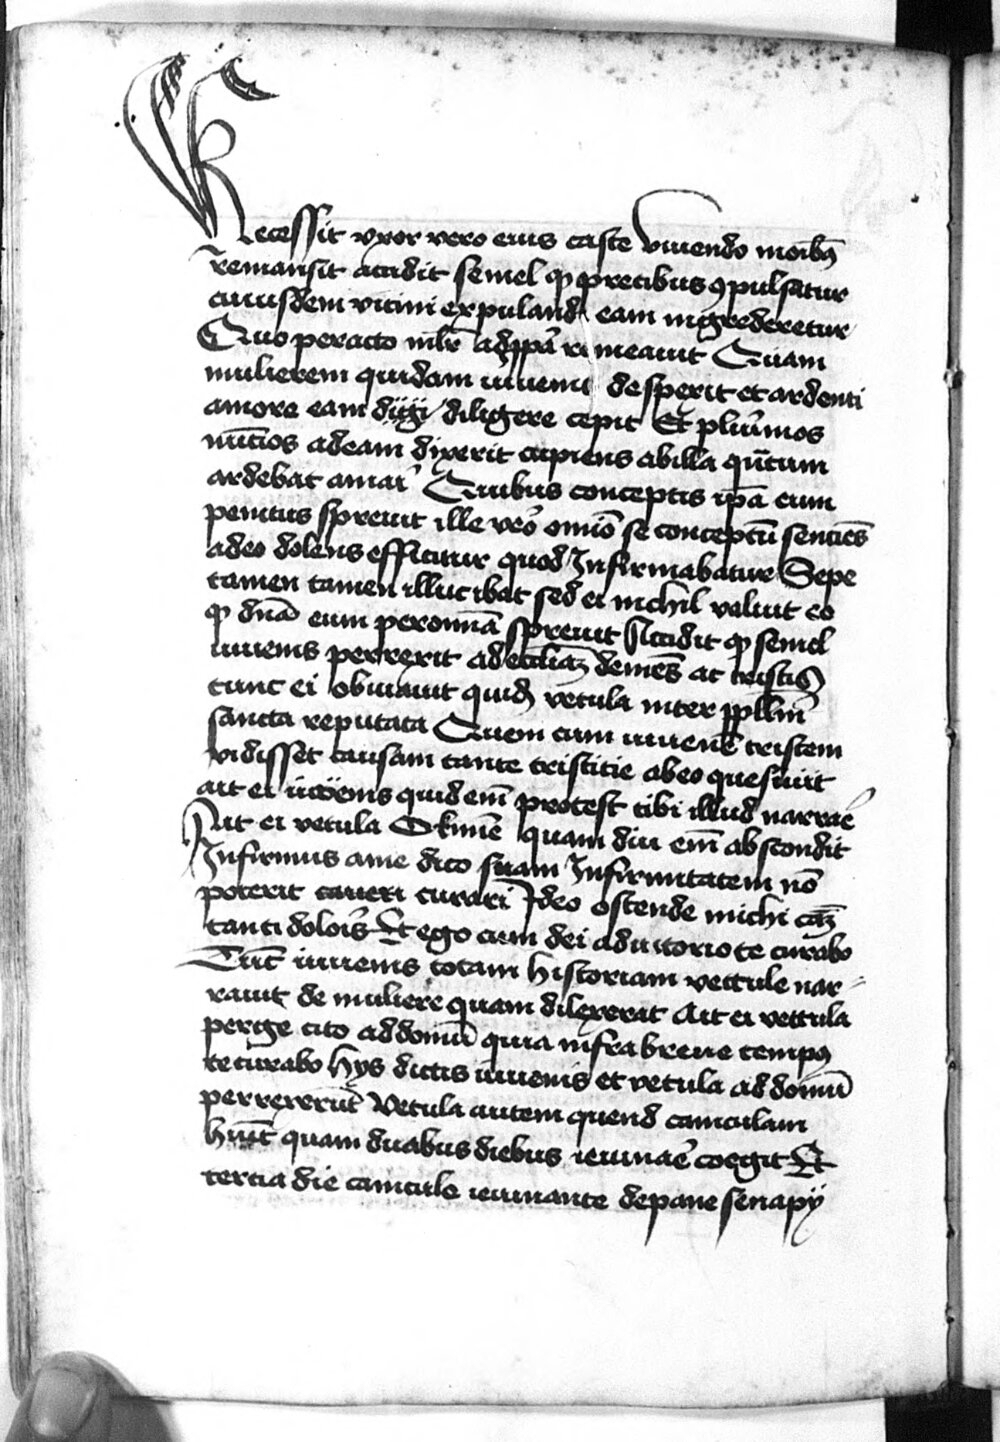 Recessit vxor vero eius caste viuendo moribꝫ
remansit accidit semel ꝙ precibus ꝯpulsatur
cuiusdem vicini expuland eam ingrederetur
Quo peracto remeauit Quam
mulierem quidam iuuenis desperit et ardenti
amore eam diligere cepit Et plurīmos
nūctios ad eam dixerit cupiens ab illa qn̄tum
ardebat amari Quibus conceptis ip̄a eum
penitus spreuit ille veō omīo se conceptū sencīes
adeo dolens efficitur quod Infirmabatur Sepe
tamen tamen illuc ibat sed ei nichil valuit eo
ꝙ dn̄a eum per omn̄ia spreuit Accidit ꝙ semel
iuuenis perrexerit ad eccliaꝫ demēs ac tristis
tunc ei obuiauit quidꝫ vetula inter ppl̄lm̄
sancta reputata Quem cum iuuenē tristem
vidisset causam tante tristitie ab eo quesiuit
ait ei iuuenis quid em̄ protest tibi illud narraē
Ait ei vetula O kīme quam diu em̄ abscondit
Infirmus a me dico suam Infirmitatem nō
poterit caueri curari Ideo ostende michi cāꝫ
tanti dolorīs Et ego cum dei adiutorio te curabo
Tūc iuuenis totam historiam vettule nar-
rauit de muliere quam dilexerat Ait ei vettula
perige cito ad domū quia infra breue tempꝯ
te curabo Hys dictis iuuenis et vetula ad domū
perrexerūt Vetula autem quend caniculam
hūit quam duabus diebus ieiunaē coegit Et
tercia die canicule ieiunante de pane senapij